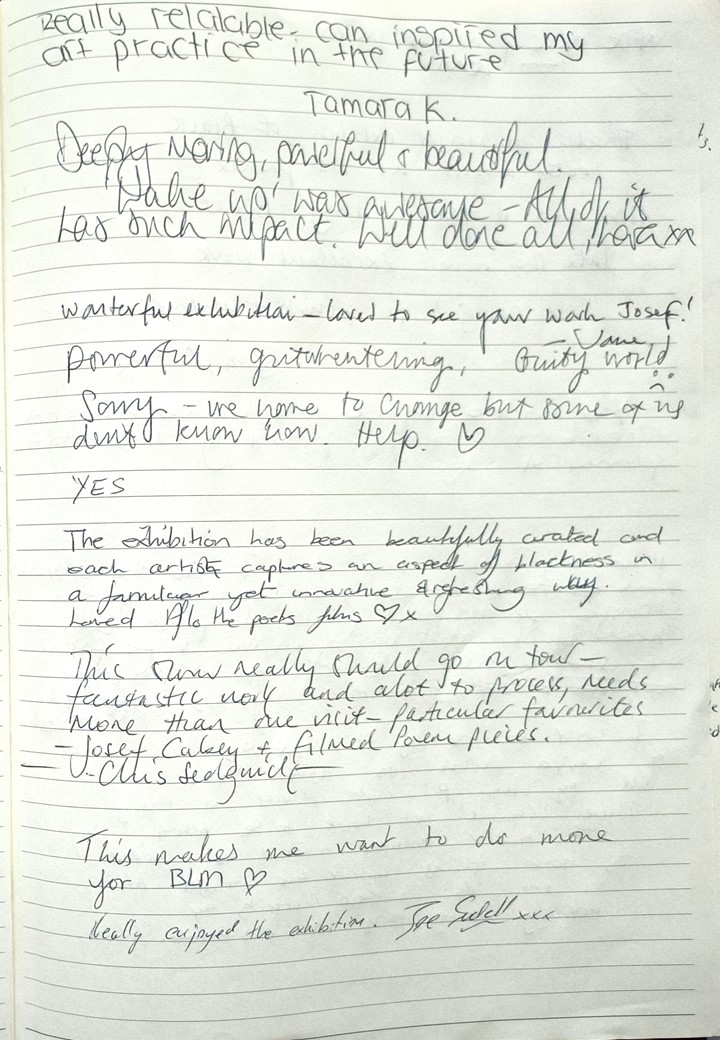 Really relalable - can inspired my
art practice in the future
Tamara K.
Deeply moving, powerful & beautiful.
'Wake up' was awesome - All of it
has such impact. Well done all,
wonterful exhibition - loved to see your work Josef!
Powerful, Guilty world
Sorry - we have to change but some of us
dont know how. Help. ♡
YES
The exhibition has been beautifully curated and
each artist captures an aspect of blackness in
a familiar yet innovative & refreshing way.
Loved Aflo the poets films ♡ x
This show really should go on tour -
fantastic work and alot to process, needs
more than one visit - particular favourites
- Josef Cabey + filmed Poem pieces.
- Chis Sedgwick
This makes me want to do more
for BLM ♡
Really enjoyed the exhibition. Joe xxx